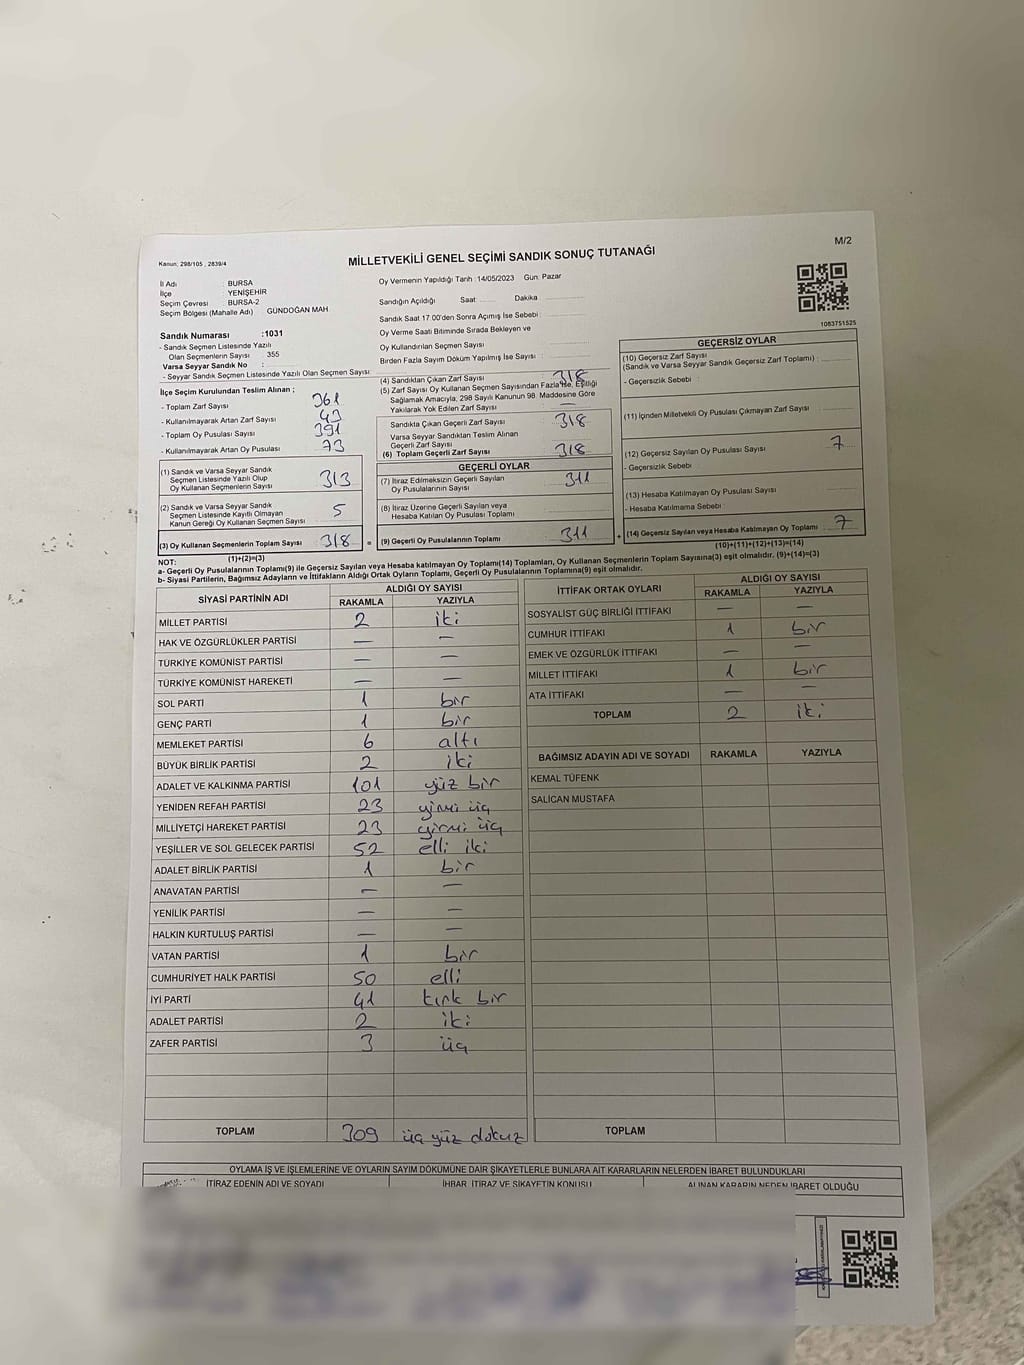 M/2
Kanun: 298/105 , 2839/4
MİLLETVEKİLİ GENEL SEÇİMİ SANDIK SONUÇ TUTANAĞI
İl Adı : BURSA
İlçe : YENİŞEHİR
Seçim Çevresi : BURSA-2
Seçim Bölgesi (Mahalle Adı) : GÜNDOĞAN MAH
Sandık Numarası :1031
- Sandık Seçmen Listesinde Yazılı
Olan Seçmenlerin Sayısı : 355
Varsa Seyyar Sandık No :
- Seyyar Sandık Seçmen Listesinde Yazılı Olan Seçmen Sayısı:
Oy Vermenin Yapıldığı Tarih : 14/05/2023 Gün: Pazar
Sandığın Açıldığı Saat Dakika
Sandık Saat 17.00'den Sonra Açılmış İse Sebebi :
Oy Verme Saati Bitiminde Sırada Bekleyen ve
Oy Kullandırılan Seçmen Sayısı :
Birden Fazla Sayım Döküm Yapılmış İse Sayısı :
1083751525
İlçe Seçim Kurulundan Teslim Alınan ;
- Toplam Zarf Sayısı : 361
- Kullanılmayarak Artan Zarf Sayısı : 43
- Toplam Oy Pusulası Sayısı : 391
- Kullanılmayarak Artan Oy Pusulası : 73
(1) Sandık ve Varsa Seyyar Sandık
Seçmen Listesinde Yazılı Olup
Oy Kullanan Seçmenlerin Sayısı 313
(2) Sandık ve Varsa Seyyar Sandık
Seçmen Listesinde Kayıtlı Olmayan
Kanun Gereği Oy Kullanan Seçmen Sayısı 5
(3) Oy Kullanan Seçmenlerin Toplam Sayısı 318 =
(1)+(2)=(3)
(4) Sandıktan Çıkan Zarf Sayısı 318
(5) Zarf Sayısı Oy Kullanan Seçmen Sayısından Fazla İse, Eşitliği
Sağlamak Amacıyla, 298 Sayılı Kanunun 98. Maddesine Göre
Yakılarak Yok Edilen Zarf Sayısı : —
Sandıkta Çıkan Geçerli Zarf Sayısı 318
Varsa Seyyar Sandıktan Teslim Alınan
Geçerli Zarf Sayısı
(6) Toplam Geçerli Zarf Sayısı 318
GEÇERLİ OYLAR
(7) İtiraz Edilmeksizin Geçerli Sayılan
Oy Pusulalarının Sayısı 311
(8) İtiraz Üzerine Geçerli Sayılan veya
Hesaba Katılan Oy Pusulası Toplamı
(9) Geçerli Oy Pusulalarının Toplamı 311 +
GEÇERSİZ OYLAR
(10) Geçersiz Zarf Sayısı
(Sandık ve Varsa Seyyar Sandık Geçersiz Zarf Toplamı) :
- Geçersizlik Sebebi :
(11) İçinden Milletvekili Oy Pusulası Çıkmayan Zarf Sayısı
(12) Geçersiz Sayılan Oy Pusulası Sayısı 7
- Geçersizlik Sebebi
(13) Hesaba Katılmayan Oy Pusulası Sayısı
- Hesaba Katılmama Sebebi :
(14) Geçersiz Sayılan veya Hesaba Katılmayan Oy Toplamı 7
(10)+(11)+(12)+(13)=(14)
NOT:
a- Geçerli Oy Pusulalarının Toplamı(9) ile Geçersiz Sayılan veya Hesaba katılmayan Oy Toplamı(14) Toplamları, Oy Kullanan Seçmenlerin Toplam Sayısına(3) eşit olmalıdır. (9)+(14)=(3)
b- Siyasi Partilerin, Bağımsız Adayların ve İttifakların Aldığı Ortak Oyların Toplamı, Geçerli Oy Pusulalarının Toplamına(9) eşit olmalıdır.
SİYASİ PARTİNİN ADI ALDIĞI OY SAYISI
RAKAMLA YAZIYLA
MİLLET PARTİSİ 2 iki
HAK VE ÖZGÜRLÜKLER PARTİSİ — —
TÜRKİYE KOMÜNİST PARTİSİ — —
TÜRKİYE KOMÜNİST HAREKETİ — —
SOL PARTİ 1 bir
GENÇ PARTİ 1 bir
MEMLEKET PARTİSİ 6 altı
BÜYÜK BİRLİK PARTİSİ 2 iki
ADALET VE KALKINMA PARTİSİ 101 yüz bir
YENİDEN REFAH PARTİSİ 23 yirmi üç
MİLLİYETÇİ HAREKET PARTİSİ 23 yirmi üç
YEŞİLLER VE SOL GELECEK PARTİSİ 52 elli iki
ADALET BİRLİK PARTİSİ 1 bir
ANAVATAN PARTİSİ — —
YENİLİK PARTİSİ — —
HALKIN KURTULUŞ PARTİSİ — —
VATAN PARTİSİ 1 bir
CUMHURİYET HALK PARTİSİ 50 elli
İYİ PARTİ 41 kırk bir
ADALET PARTİSİ 2 iki
ZAFER PARTİSİ 3 üç
TOPLAM 309 üç yüz dokuz
İTTİFAK ORTAK OYLARI ALDIĞI OY SAYISI
RAKAMLA YAZIYLA
SOSYALİST GÜÇ BİRLİĞİ İTTİFAKI — —
CUMHUR İTTİFAKI 1 bir
EMEK VE ÖZGÜRLÜK İTTİFAKI — —
MİLLET İTTİFAKI 1 bir
ATA İTTİFAKI — —
TOPLAM 2 iki
BAĞIMSIZ ADAYIN ADI VE SOYADI RAKAMLA YAZIYLA
KEMAL TÜFENK
SALİCAN MUSTAFA
TOPLAM
OYLAMA İŞ VE İŞLEMLERİNE VE OYLARIN SAYIM DÖKÜMÜNE DAİR ŞİKAYETLERLE BUNLARA AİT KARARLARIN NELERDEN İBARET BULUNDUKLARI
İTİRAZ EDENİN ADI VE SOYADI İHBAR, İTİRAZ VE ŞİKAYETİN KONUSU ALINAN KARARIN NEDEN İBARET OLDUĞU